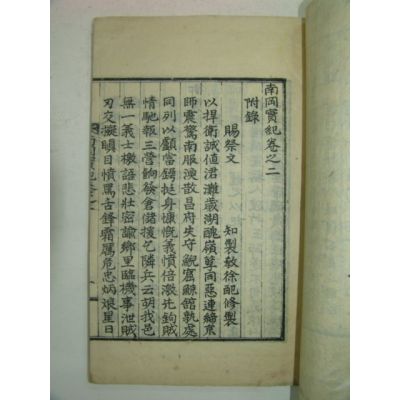 南岡實紀卷之二
附錄
賜祭文
知製敎徐配修製
以捍衛誠値君灘歲湖醜嶺孽同惡連締京
師震驚南服澒散昌府失守觀窟鯨館執處
同列以顧當鐸挺身慷慨義憤倍激先鉤賊
情馳報三營餉餱倉儲援乞隣兵云胡我邑
無一義士檄語悲壯密諭鄉里臨機事泄賊
刃交擬瞋目憤罵古鋒霜厲危忠炳娘星日